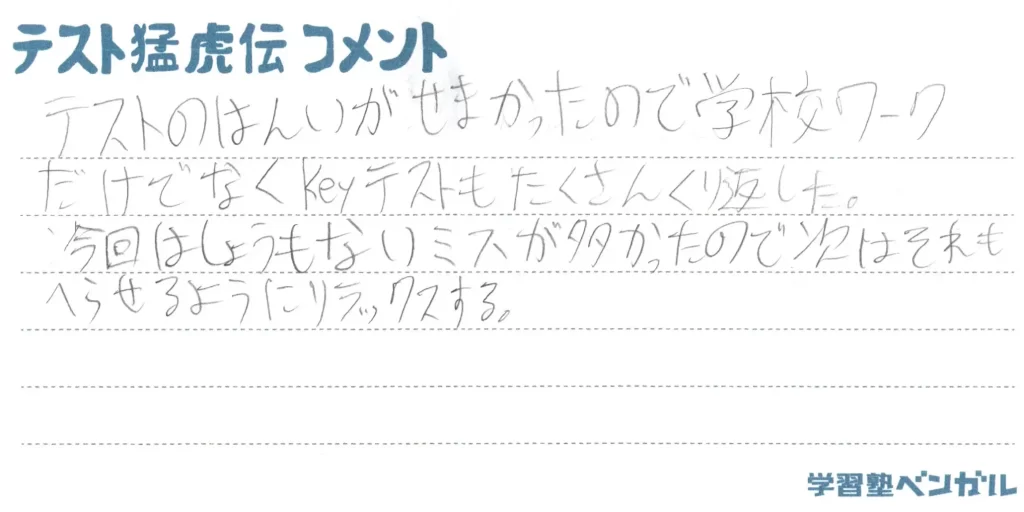 テスト猛虎伝 コメント
テストのはんいがせまかったので学校ワーク
だけでなくKeyテストもたくさんくり返した。
今回はしょうもないミスが多かったので次はそれも
へらせるようにリラックスする。
学習塾ベンガル